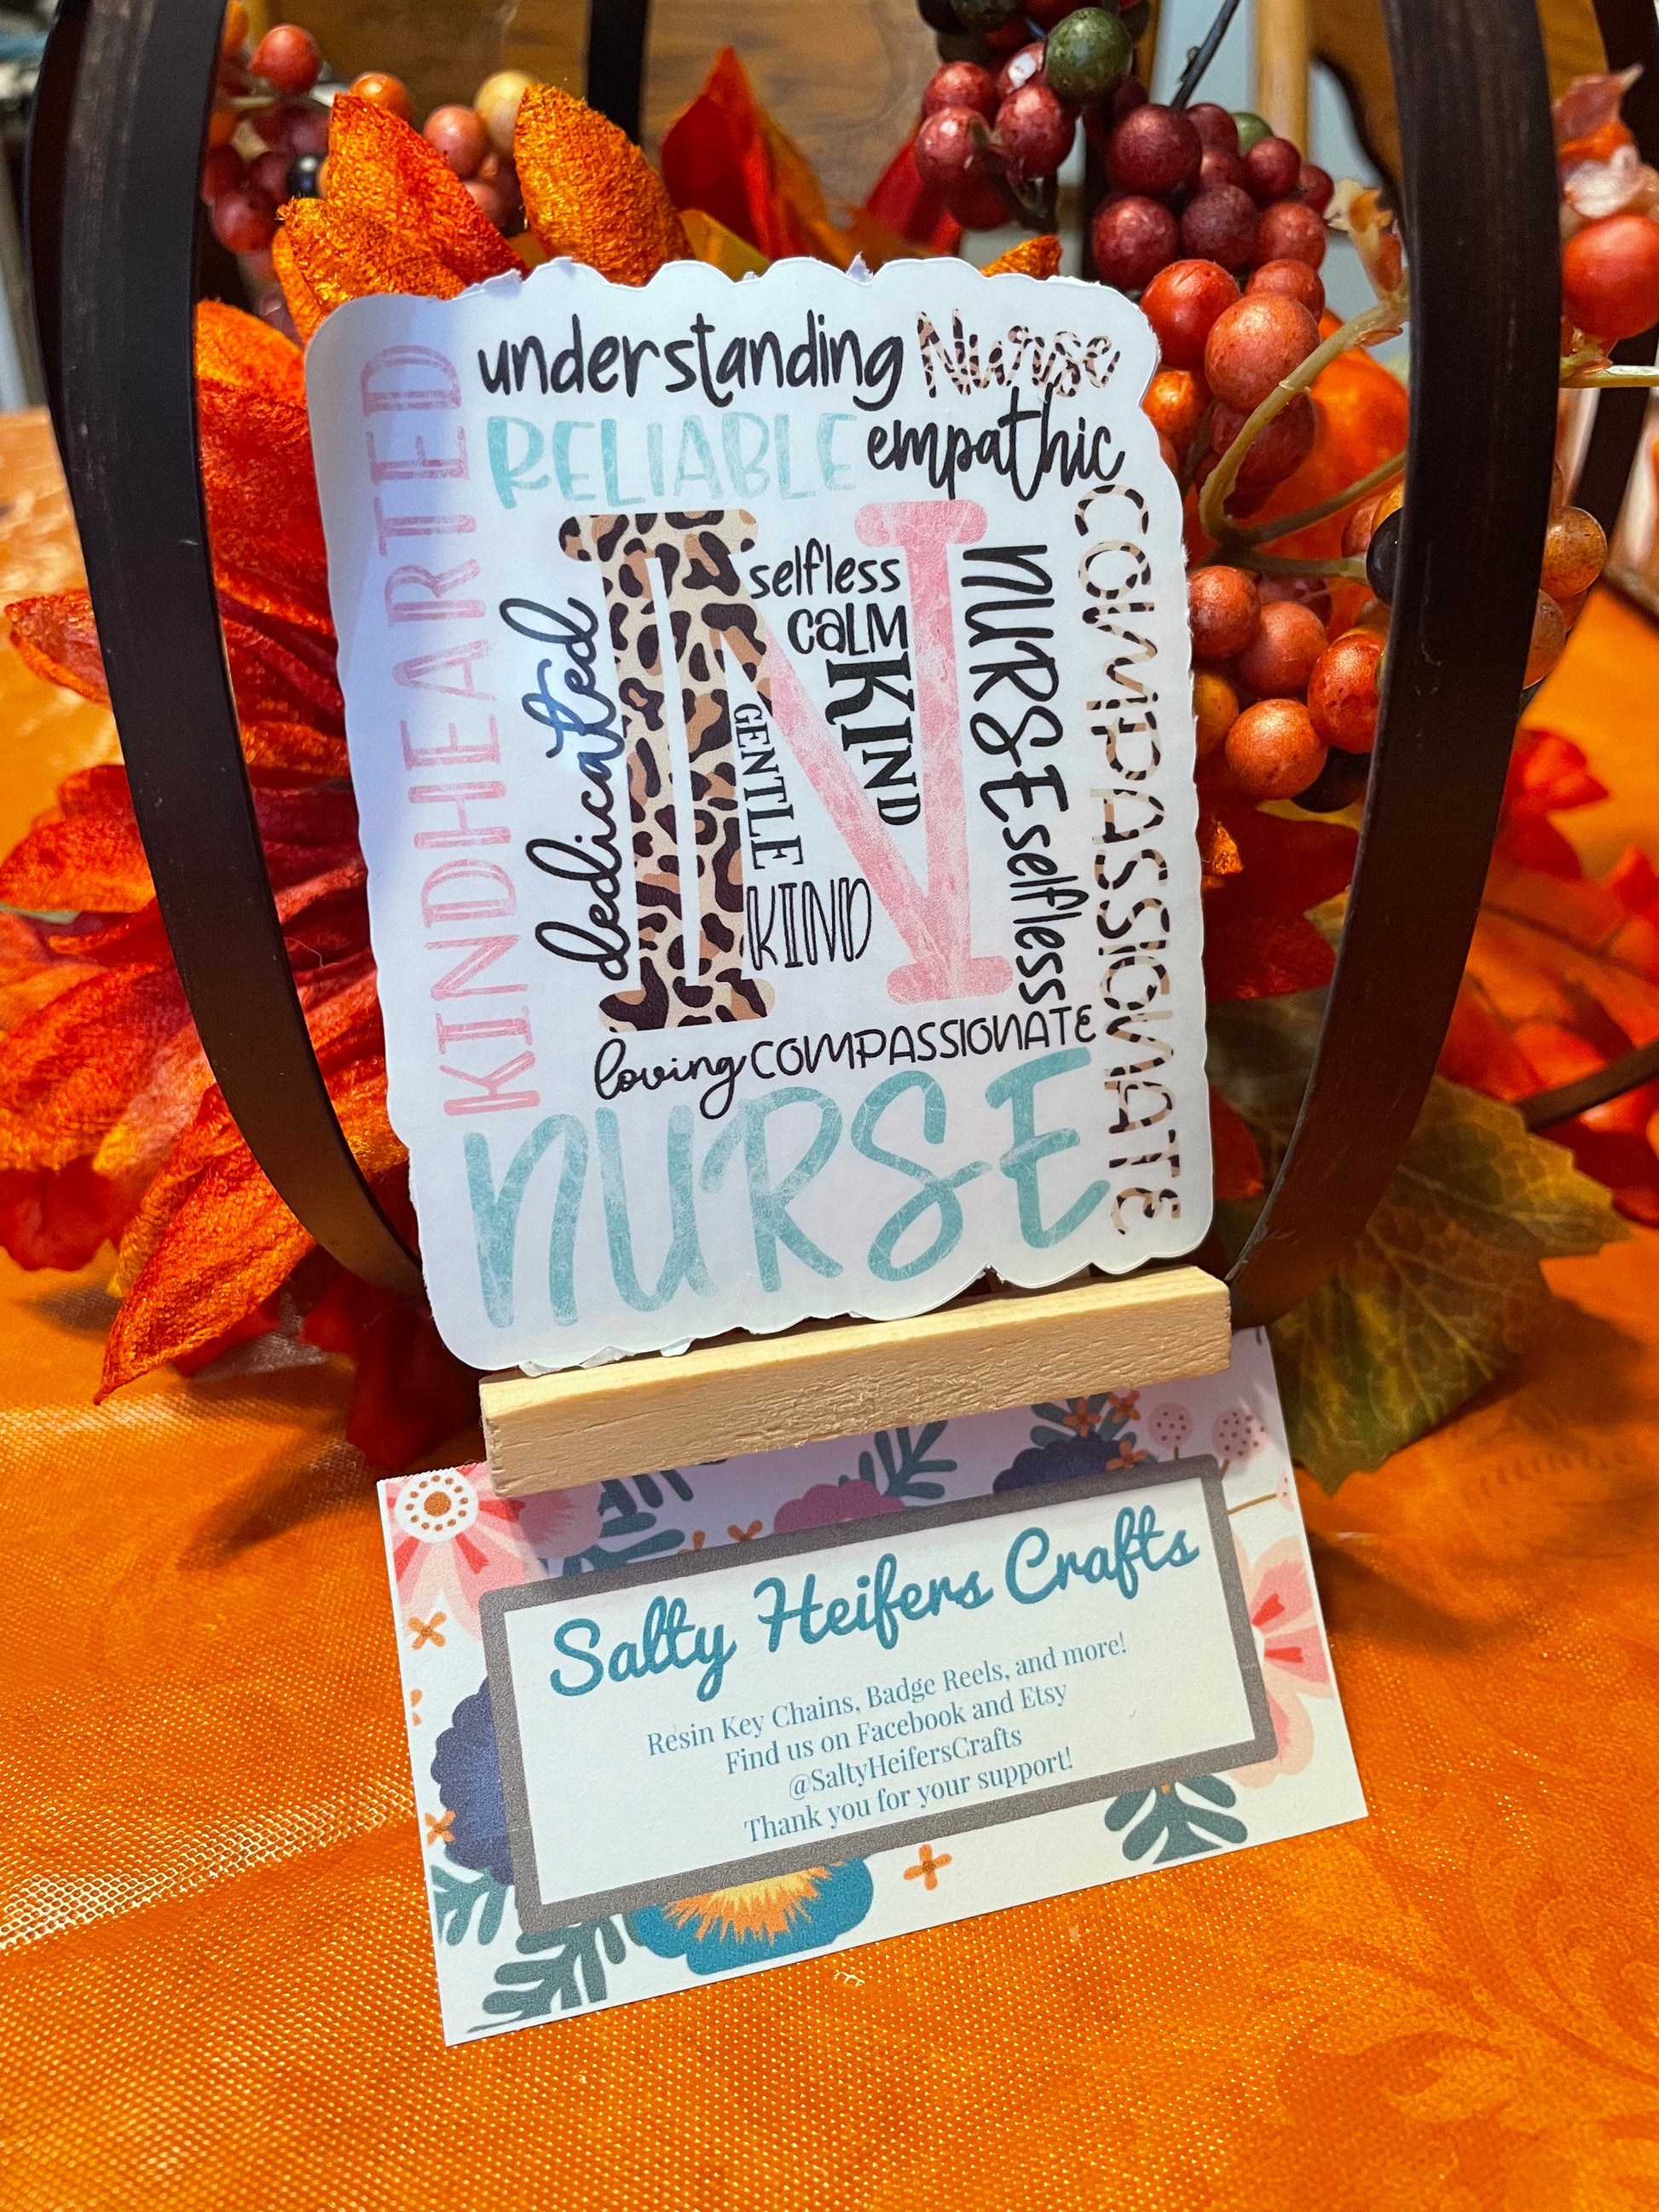 understanding Nurse
RELIABLE empathic
KINDHEARTED
dedicated
N
selfless
CALM
KIND
GENTLE
KIND
NURSE
selfless
COMPASSIONATE
loving COMPASSIONATE
NURSE
Salty Heifers Crafts
Resin Key Chains, Badge Reels, and more!
Find us on Facebook and Etsy
@SaltyHeifersCrafts
Thank you for your support!